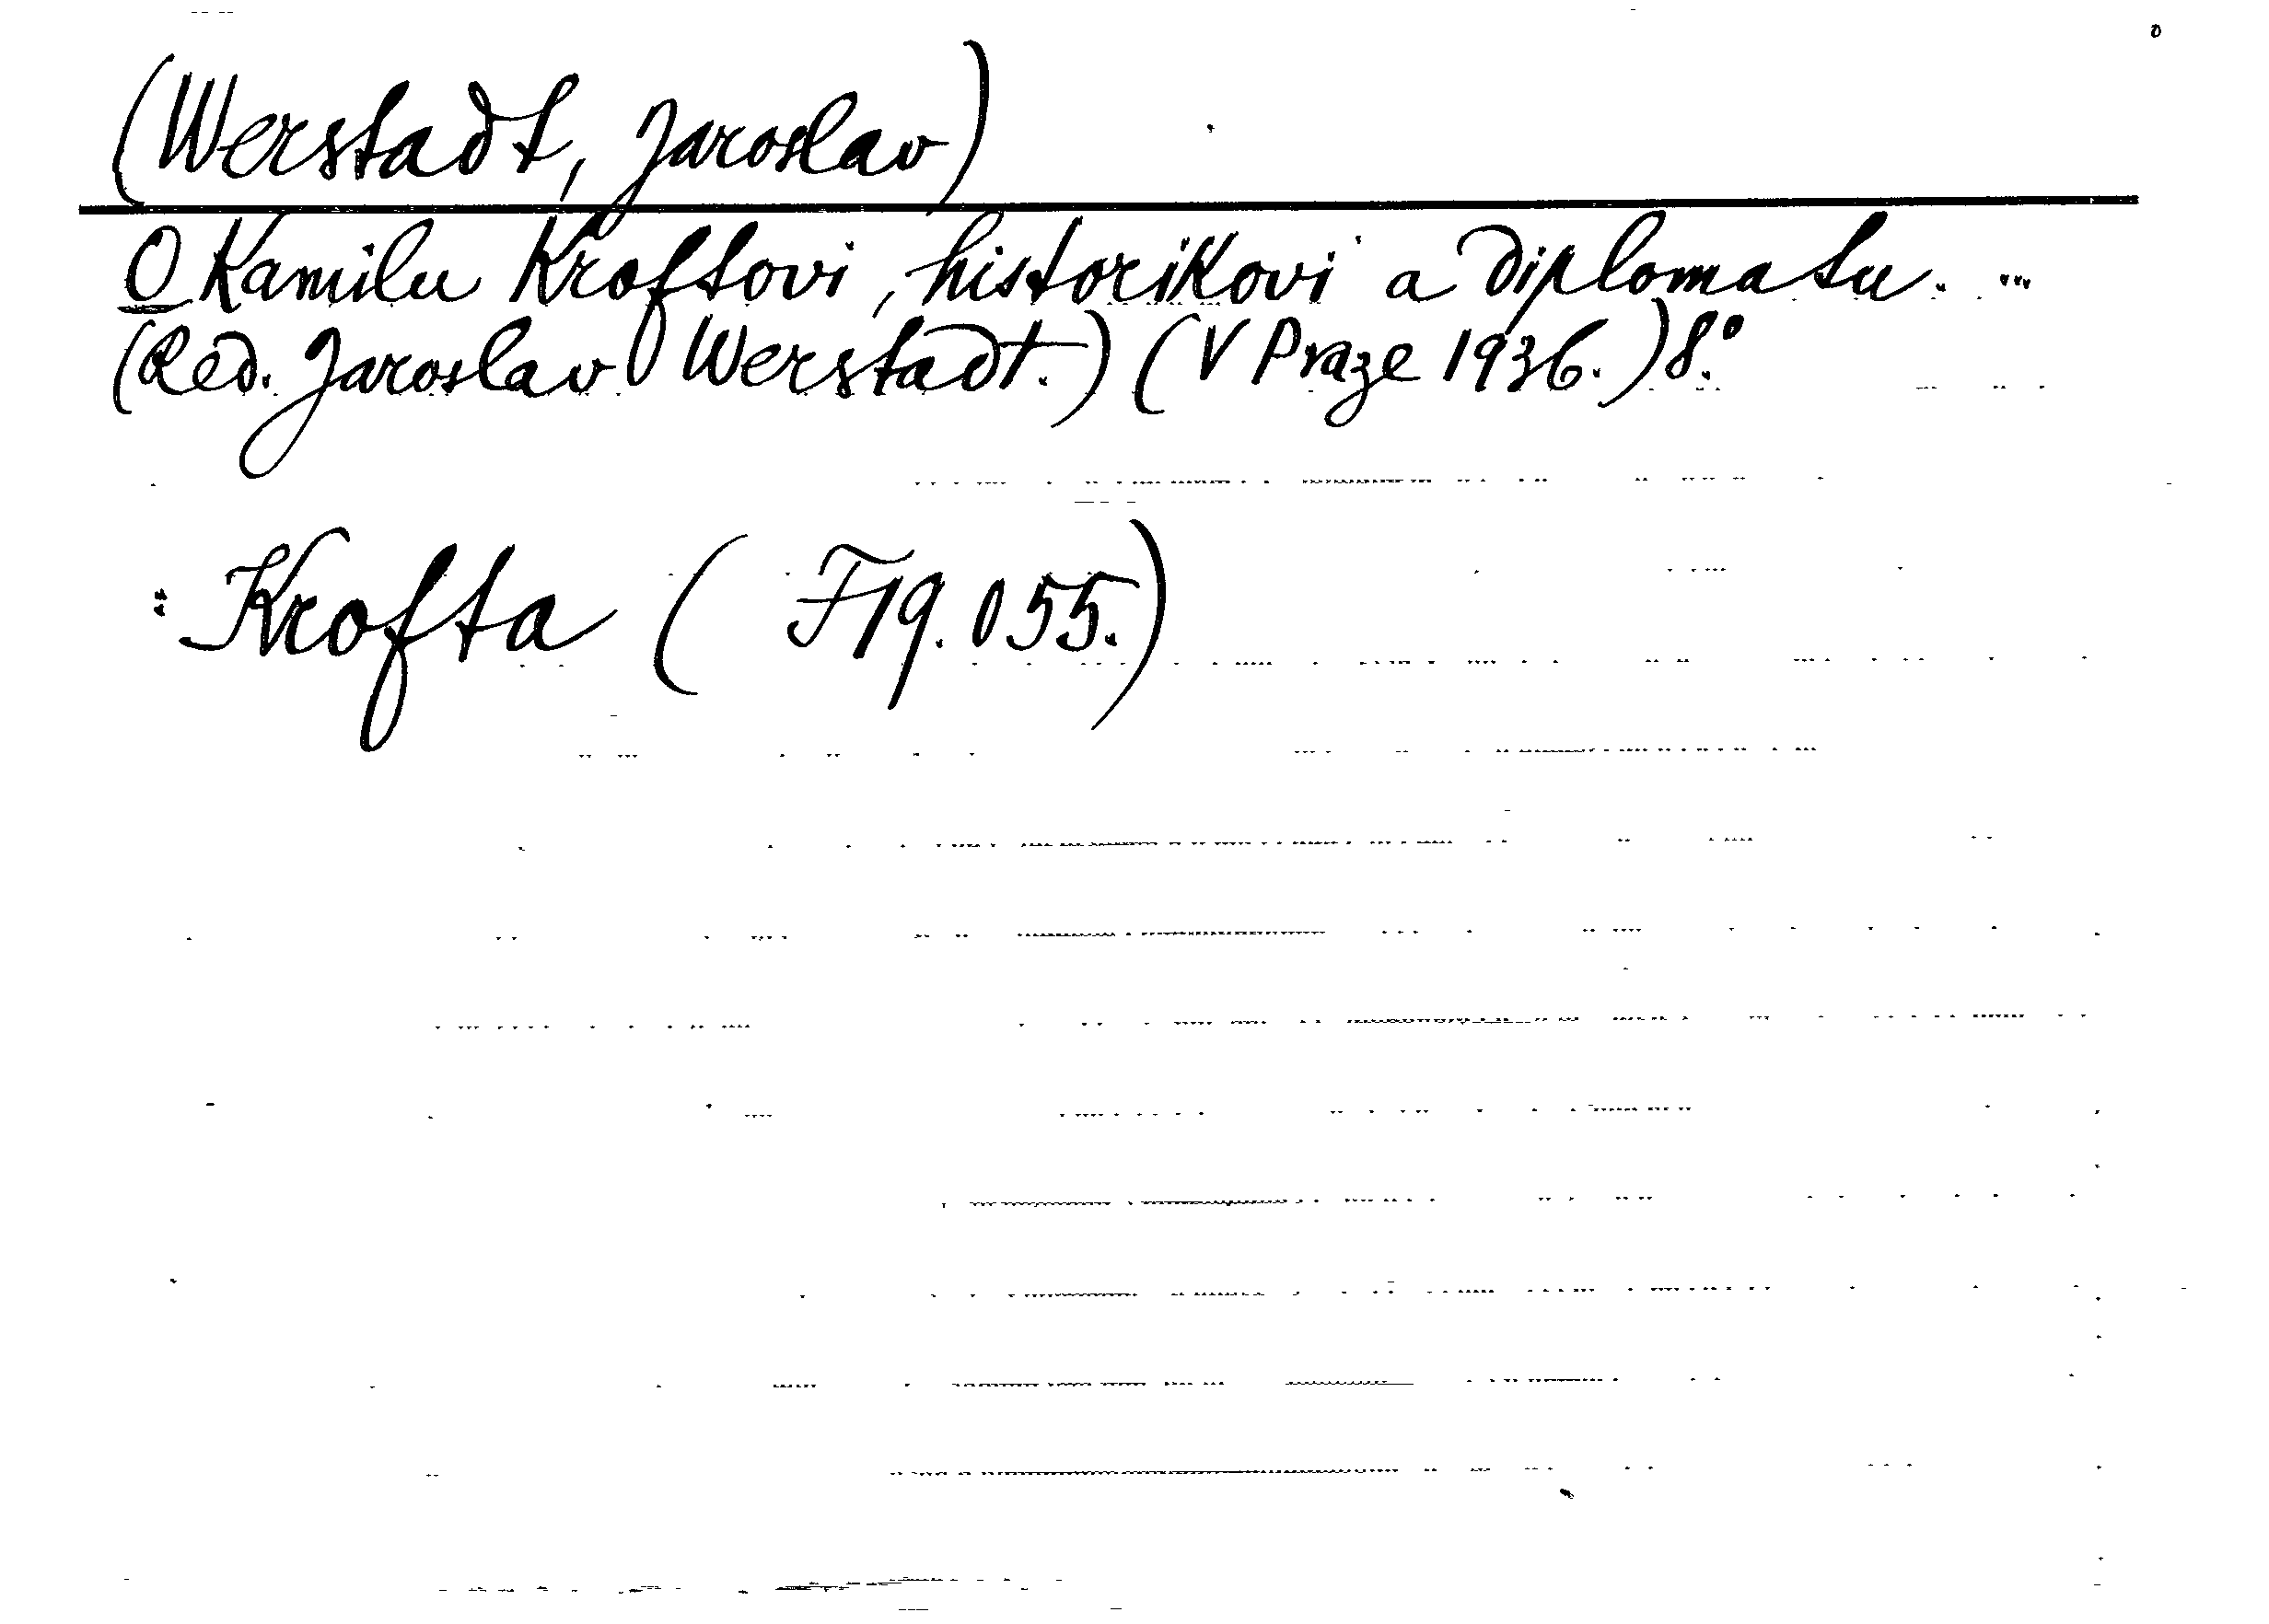 (Werstadt, Jaroslav)
O Kamilu Kroftovi, historikovi a diplomatu. ...
(Red. Jaroslav Werstadt.) (V Praze 1936.) 8.°
: Krofta ( F 19.055.)